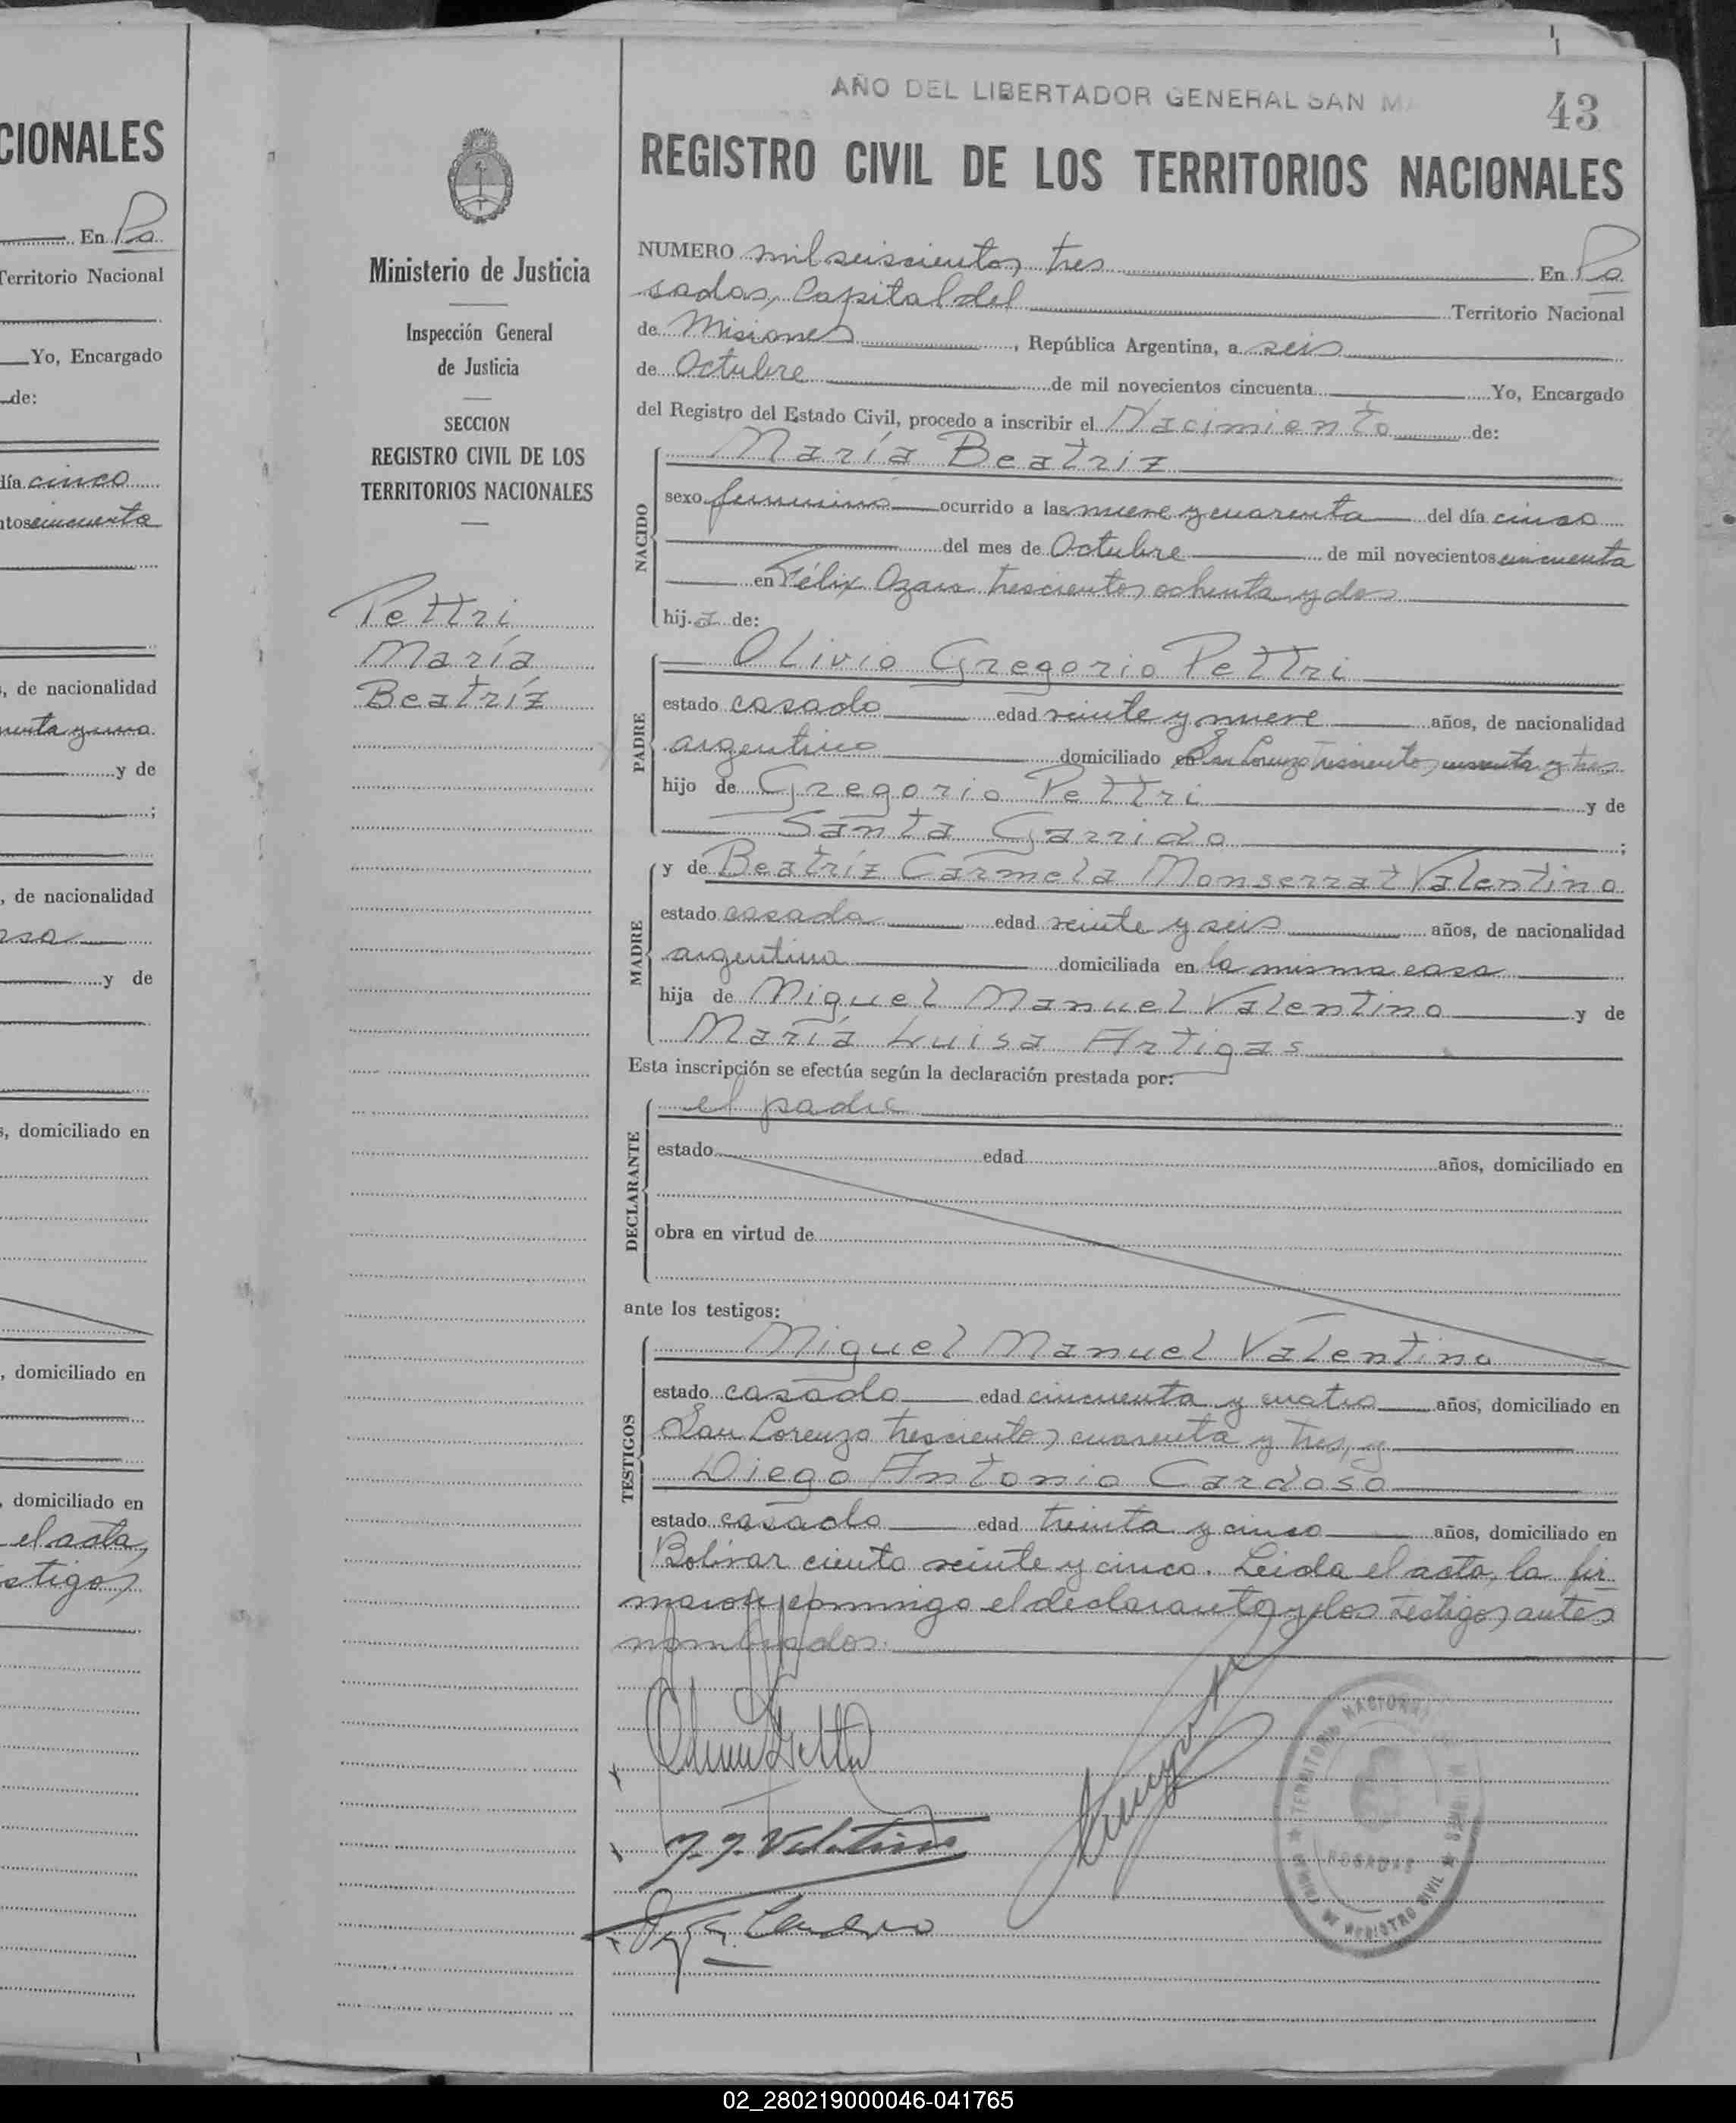 CIONALES
En Po
Territorio Nacional
Yo, Encargado
de:
día cinco
ntos cincuenta
, de nacionalidad
y de
;
, de nacionalidad
y de
s, domiciliado en
, domiciliado en
, domiciliado en
el acta,
stigos
Ministerio de Justicia
Inspección General
de Justicia
SECCION
REGISTRO CIVIL DE LOS
TERRITORIOS NACIONALES
Pettri
María
Beatríz
AÑO DEL LIBERTADOR GENERAL SAN MA
43
REGISTRO CIVIL DE LOS TERRITORIOS NACIONALES
NUMERO mil seiscientos tres En Po
sadas, Capital del Territorio Nacional
de Misiones, República Argentina, a seis
de Octubre de mil novecientos cincuenta Yo, Encargado
del Registro del Estado Civil, procedo a inscribir el Nacimiento de:
María Beatriz
NACIDO
sexo femenino ocurrido a las nueve y cuarenta del día cinco
del mes de Octubre de mil novecientos cincuenta
en Félix Azara trescientos ochenta y dos
hija de:
Olivio Gregorio Pettri
PADRE
estado casado edad veinte y nueve años, de nacionalidad
argentino domiciliado en San Lorenzo trescientos cuarenta y tres
hijo de Gregorio Pettri y de
Santa Garrido;
y de Beatríz Carmela Monserrat Valentino
MADRE
estado casada edad veinte y seis años, de nacionalidad
argentina domiciliada en la misma casa
hija de Miguel Manuel Valentino y de
María Luisa Artigas
Esta inscripción se efectúa según la declaración prestada por:
el padre
DECLARANTE
estado edad años, domiciliado en
obra en virtud de
ante los testigos:
Miguel Manuel Valentino
TESTIGOS
estado casado edad cincuenta y cuatro años, domiciliado en
San Lorenzo trescientos cuarenta y tres, y
Diego Antonio Cardoso
estado casado edad treinta y cinco años, domiciliado en
Bolívar ciento veinte y cinco. Leida el acta, la fir
maron conmigo el declarante y los testigos antes
nombrados.
TERRITORIO NACIONAL MISIONES
POSADAS
OFICINA DE REGISTRO CIVIL
02_280219000046-041765